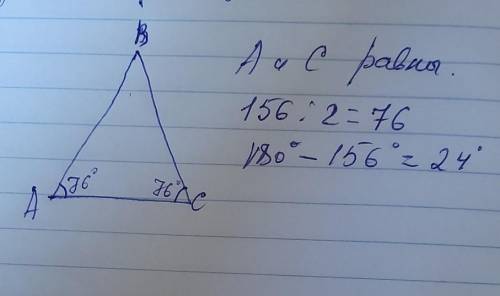 B
A и C равны.
156 : 2 = 76
180° – 156° = 24°
76° 76°
A C